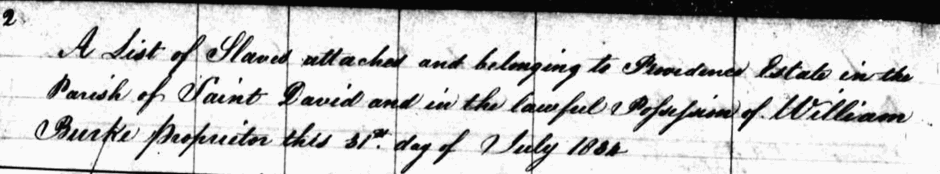 2
A List of Slaves attached and belonging to Providence Estate in the
Parish of Saint David and in the lawful Possession of William
Burke proprietor this 31st. day of July 1834